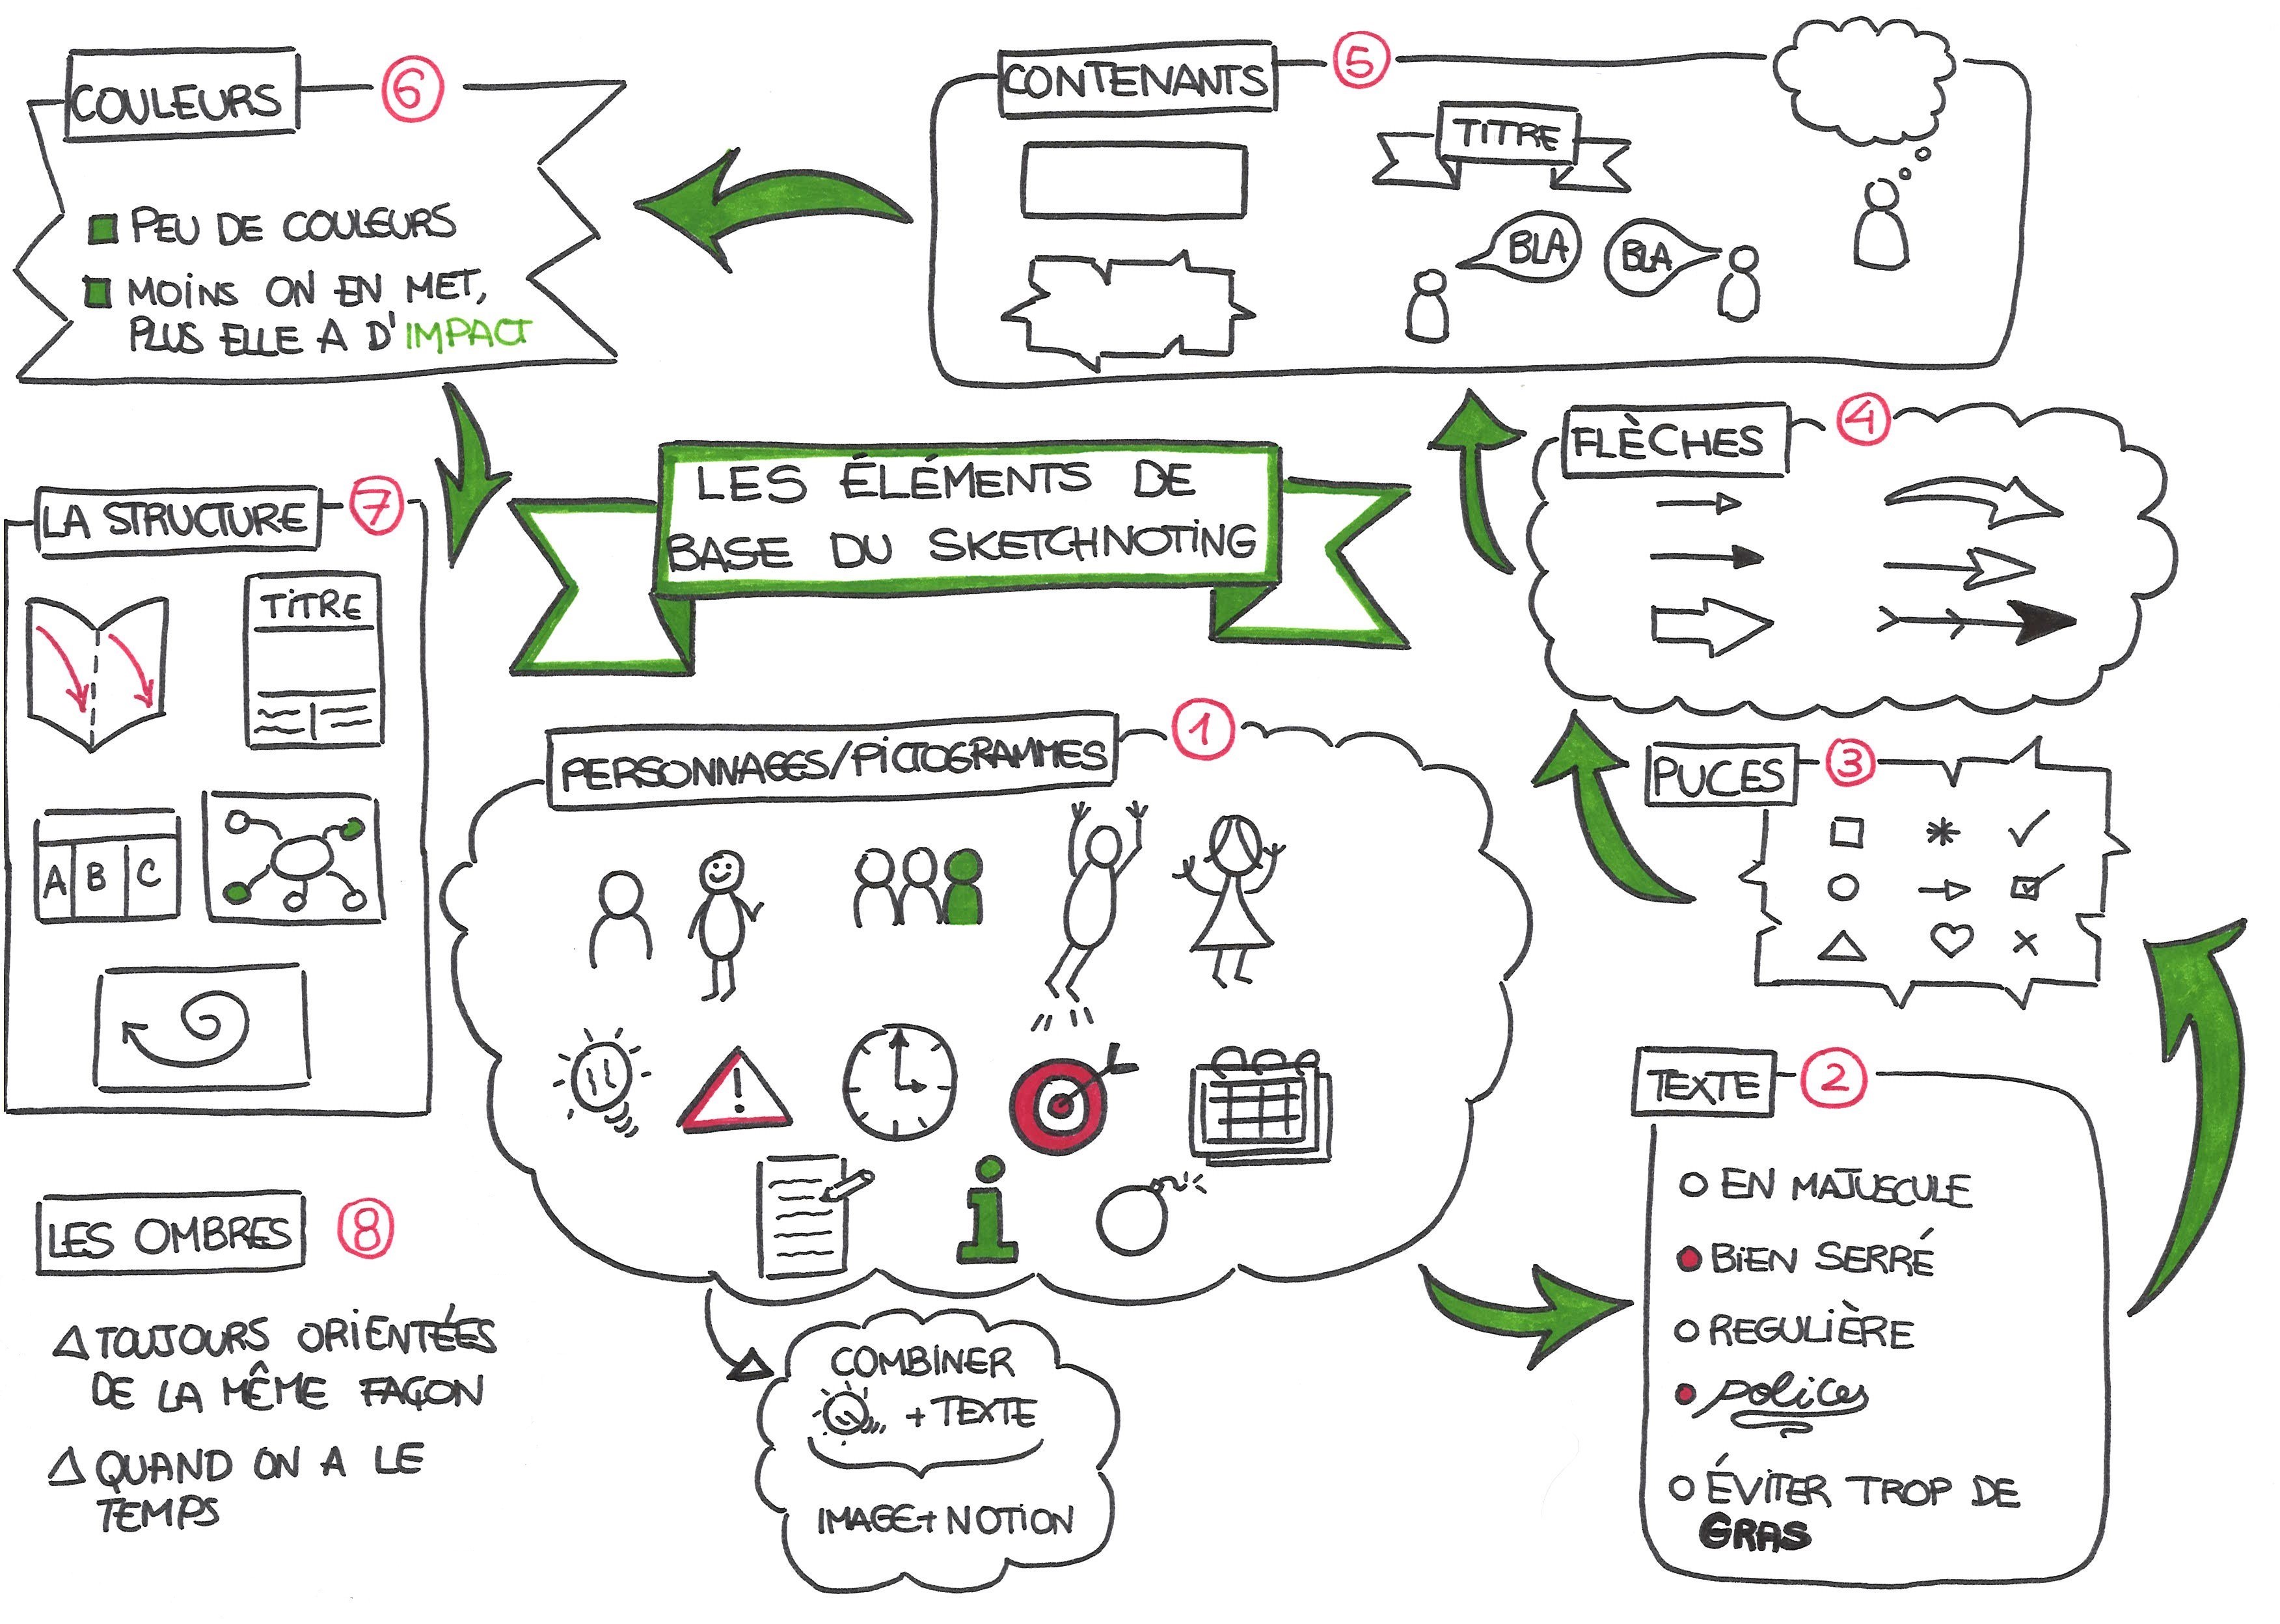 LES ÉLÉMENTS DE
BASE DU SKETCHNOTING
PERSONNAGES/PICTOGRAMMES
1
!
i
COMBINER
+ TEXTE
IMAGE+ NOTION
TEXTE
2
EN MAJUSCULE
BIEN SERRÉ
REGULIÈRE
polices
ÉVITER TROP DE
GRAS
PUCES
3
FLÈCHES
4
CONTENANTS
5
TITRE
BLA
BLA
COULEURS
6
PEU DE COULEURS
MOINS ON EN MET,
PLUS ELLE A D'IMPACT
LA STRUCTURE
7
TITRE
A B C
LES OMBRES
8
TOUJOURS ORIENTÉES
DE LA MÊME FAÇON
QUAND ON A LE
TEMPS